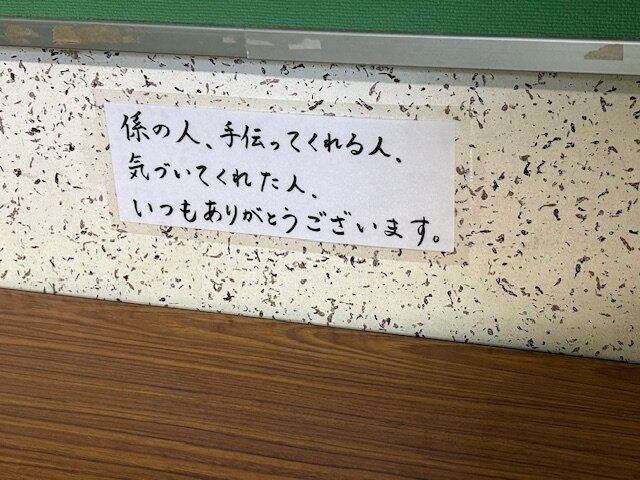 係の人、手伝ってくれる人、
気づいてくれた人、
いつもありがとうございます。